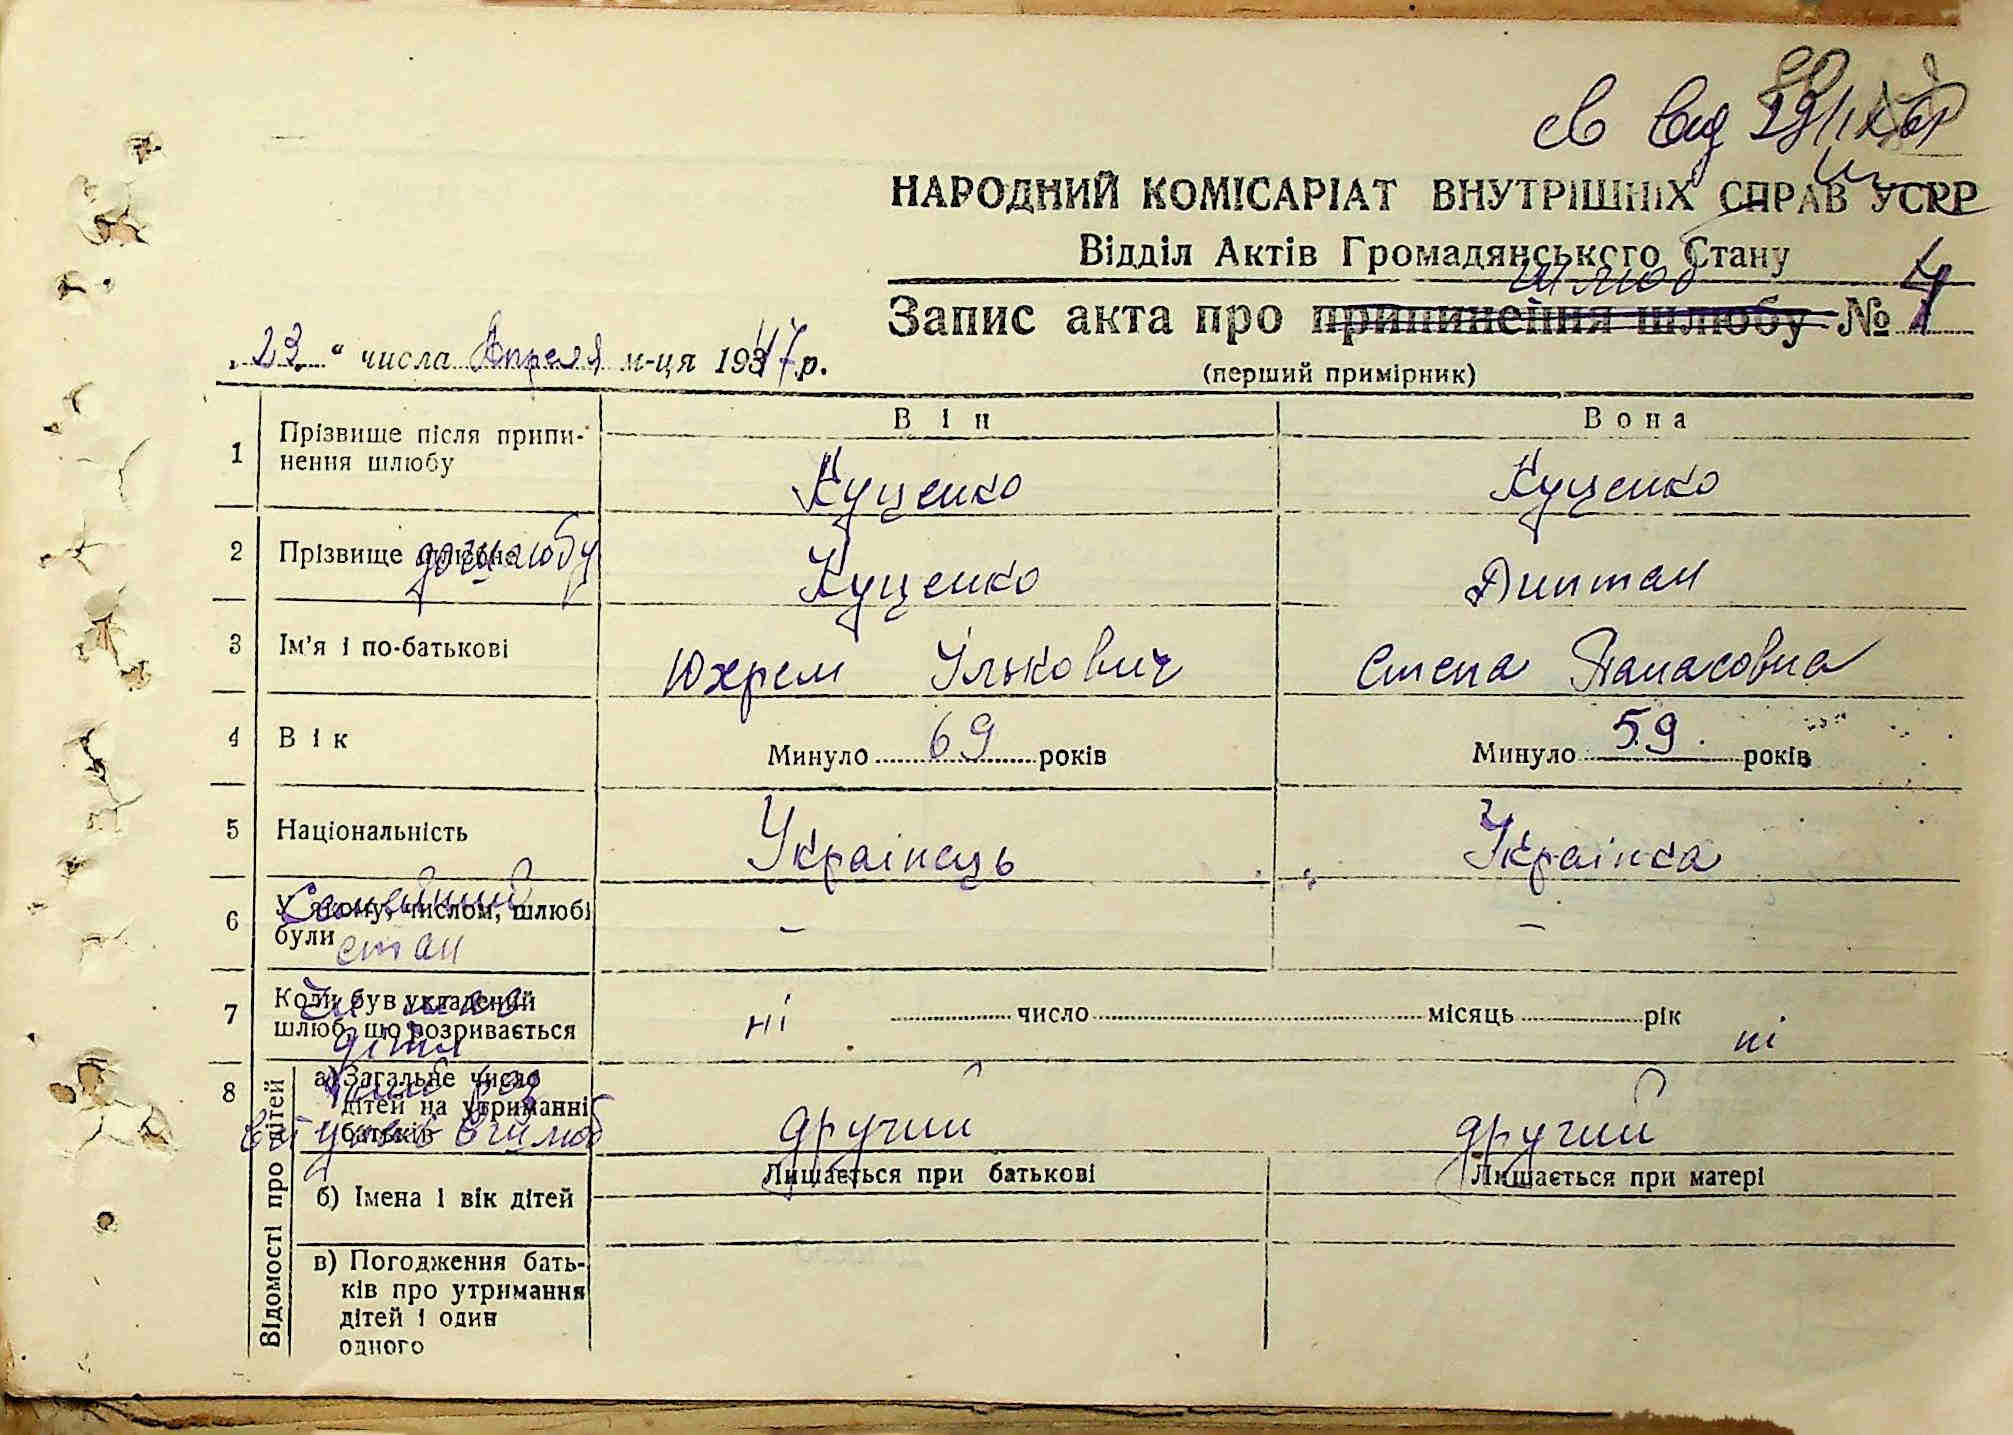 НАРОДНИЙ КОМІСАРІАТ ВНУТРІШНІХ СПРАВ УСРР
Відділ Актів Громадянського Стану
шлюб
Запис акта про припинення шлюбу № 4
„23“ числа Апреля м-ця 1947 р.
(перший примірник)
Він Вона
1 Прізвище після припи-
нення шлюбу Куценко Куценко
2 Прізвище до шлюбу Куценко Диптан
3 Ім'я і по-батькові Юхрем Ількович Степа Панасовна
4 Вік Минуло 69 років Минуло 59 років
5 Національність Українець Украінка
Семейний
6 У якому, числом, шлюбі
були стан - -
7 Коли був укладений
шлюб, що розривається ні число місяць рік ні
діти
8 Відомості про дітей
а) Загальне число
дітей на утриманні
батьків
вступає в шлюб другий другий
Лишається при батькові Лишається при матері
б) Імена і вік дітей
в) Погодження бать-
ків про утримання
дітей і один
одного